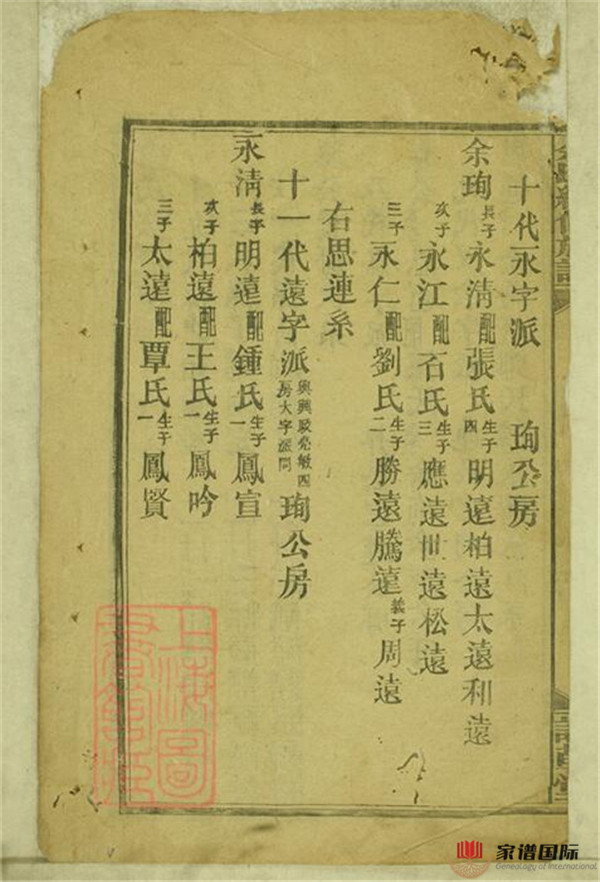 十代永字派 珣公房
余珣長子永清配張氏生子四明遠柏遠太遠和遠
次子永江配石氏生子三應遠世遠松遠
三子永仁配劉氏生子二勝遠騰遠義子周遠
右思連系
十一代遠字派 房大字派同 珣公房
永清長子明遠配鍾氏生子一鳳宣
次子柏遠配王氏生子一鳳吟
三子太遠配覃氏生子一鳳賢
上海圖
家谱国际
Genealogy of International